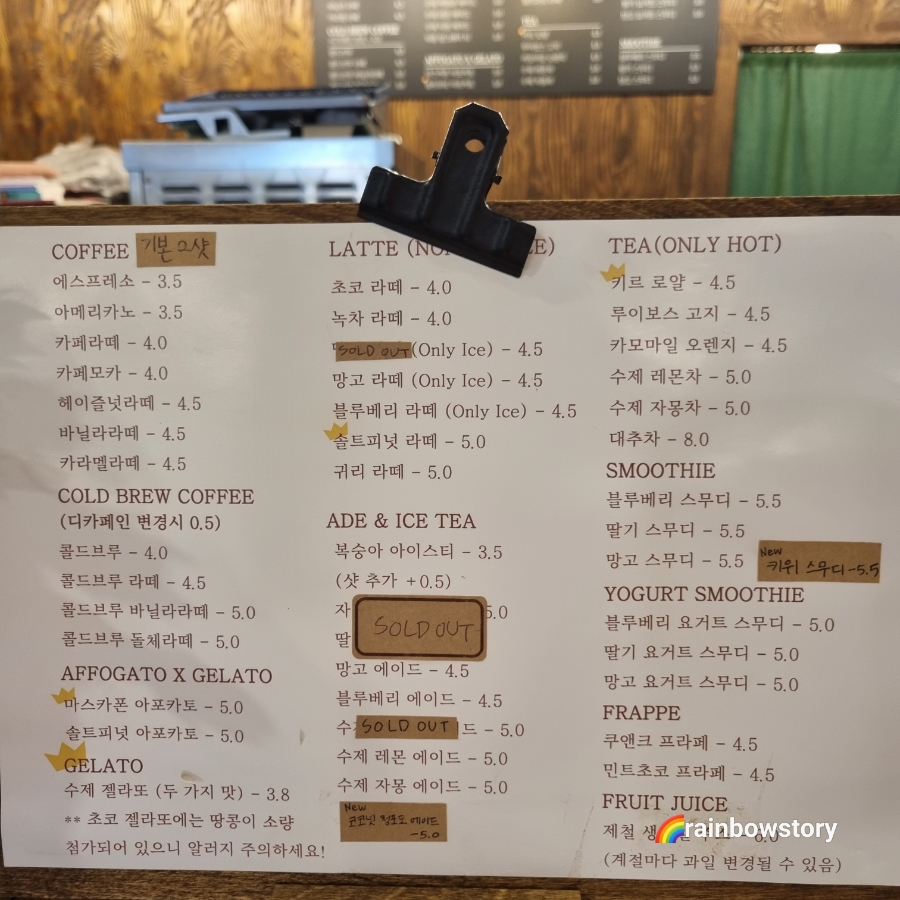 COFFEE 기본 2샷
에스프레소 - 3.5
아메리카노 - 3.5
카페라떼 - 4.0
카페모카 - 4.0
헤이즐넛라떼 - 4.5
바닐라라떼 - 4.5
카라멜라떼 - 4.5
COLD BREW COFFEE
(디카페인 변경시 0.5)
콜드브루 - 4.0
콜드브루 라떼 - 4.5
콜드브루 바닐라라떼 - 5.0
콜드브루 돌체라떼 - 5.0
AFFOGATO X GELATO
마스카폰 아포카토 - 5.0
솔트피넛 아포카토 - 5.0
GELATO
수제 젤라또 (두 가지 맛) - 3.8
** 초코 젤라또에는 땅콩이 소량
첨가되어 있으니 알러지 주의하세요!
LATTE
초코 라떼 - 4.0
녹차 라떼 - 4.0
SOLD OUT (Only Ice) - 4.5
망고 라떼 (Only Ice) - 4.5
블루베리 라떼 (Only Ice) - 4.5
솔트피넛 라떼 - 5.0
귀리 라떼 - 5.0
ADE & ICE TEA
복숭아 아이스티 - 3.5
(샷 추가 +0.5)
자 5.0
SOLD OUT
딸
망고 에이드 - 4.5
블루베리 에이드 - 4.5
수 SOLD OUT 드 - 5.0
수제 레몬 에이드 - 5.0
수제 자몽 에이드 - 5.0
New
코코넛 청포도 에이드
-5.0
TEA(ONLY HOT)
키르 로얄 - 4.5
루이보스 고지 - 4.5
카모마일 오렌지 - 4.5
수제 레몬차 - 5.0
수제 자몽차 - 5.0
대추차 - 8.0
SMOOTHIE
블루베리 스무디 - 5.5
딸기 스무디 - 5.5
망고 스무디 - 5.5
New
키위 스무디 -5.5
YOGURT SMOOTHIE
블루베리 요거트 스무디 - 5.0
딸기 요거트 스무디 - 5.0
망고 요거트 스무디 - 5.0
FRAPPE
쿠앤크 프라페 - 4.5
민트초코 프라페 - 4.5
FRUIT JUICE
제철 생
(계절마다 과일 변경될 수 있음)
rainbowstory